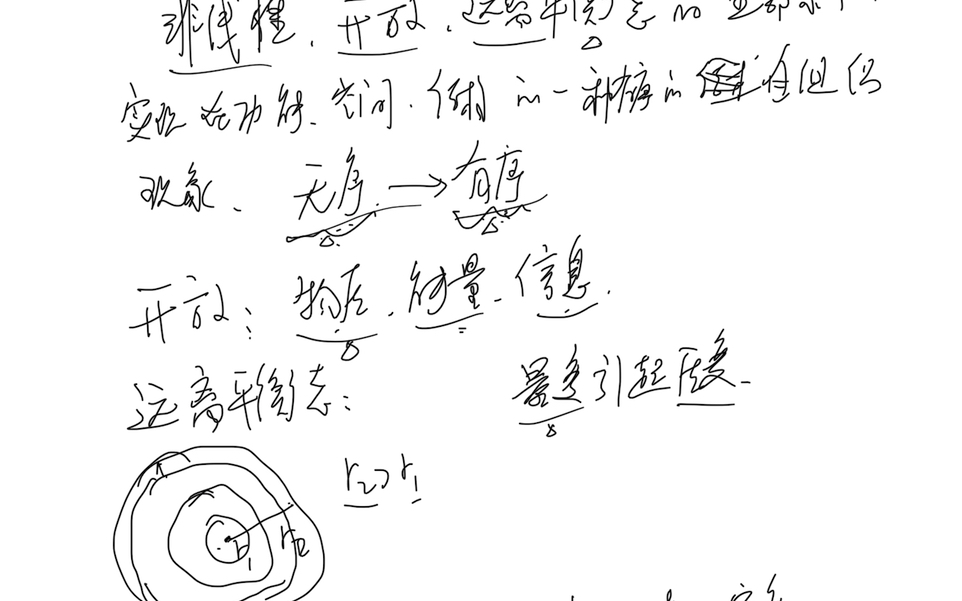 非线性、开放、远离平衡态的
实现在功能、空间、的一种有序的
现象、 无序 → 有序
开放：物质、能量、信息.
远离平衡态： 量变引起质变
r₂>r₁
r₁ r₂